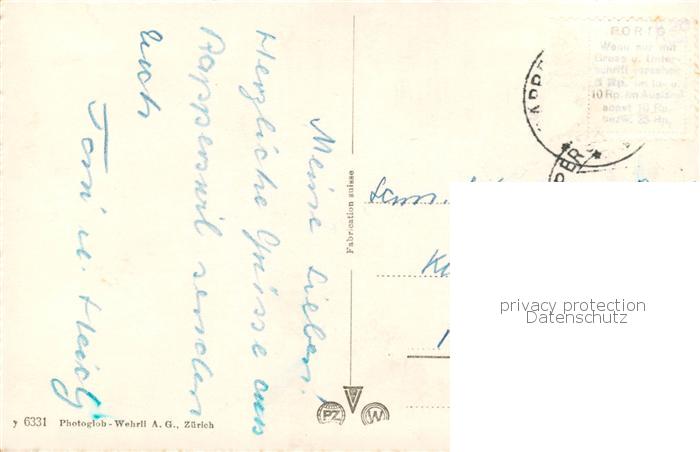 Meine Lieben!
Herzliche Grüsse aus
Rapperswil senden
Euch
Toni u. Heidy
Fabrication suisse
PORTO
Wenn nur mit
Gruss u. Unter-
schrift versehen
5 Rp. im In- u.
10 Rp. im Ausland
sonst 10 Rp.
bezw. 25 Rp.
Fam.
privacy protection
Datenschutz
PZ W
y 6331 Photoglob-Wehrli A. G., Zürich